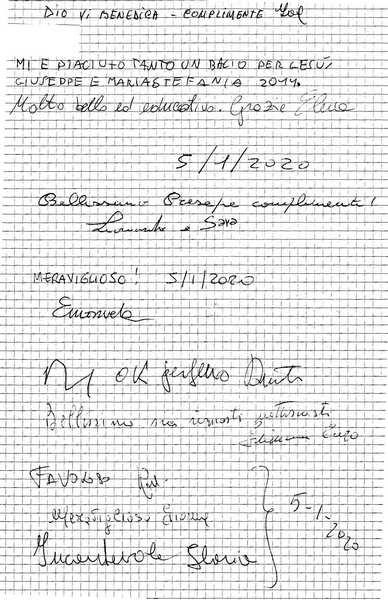 DIO VI BENEDICA - COMPLIMENTE
MI E PIACIUTO TANTO UN BACIO PER GESÙ
GIUSEPPE E MARIASTEFANIA 2014.
Molto bello ed educativo. Grazie Elena
5/1/2020
Bellissimo Presepe complimenti!
Leonardo e Sara
MERAVIGLIOSO! 5/1/2020
Emanuela
OK
Bellissimo
FAVOLOSO
Meraviglioso
Incantevole Gloria
5-1-2020